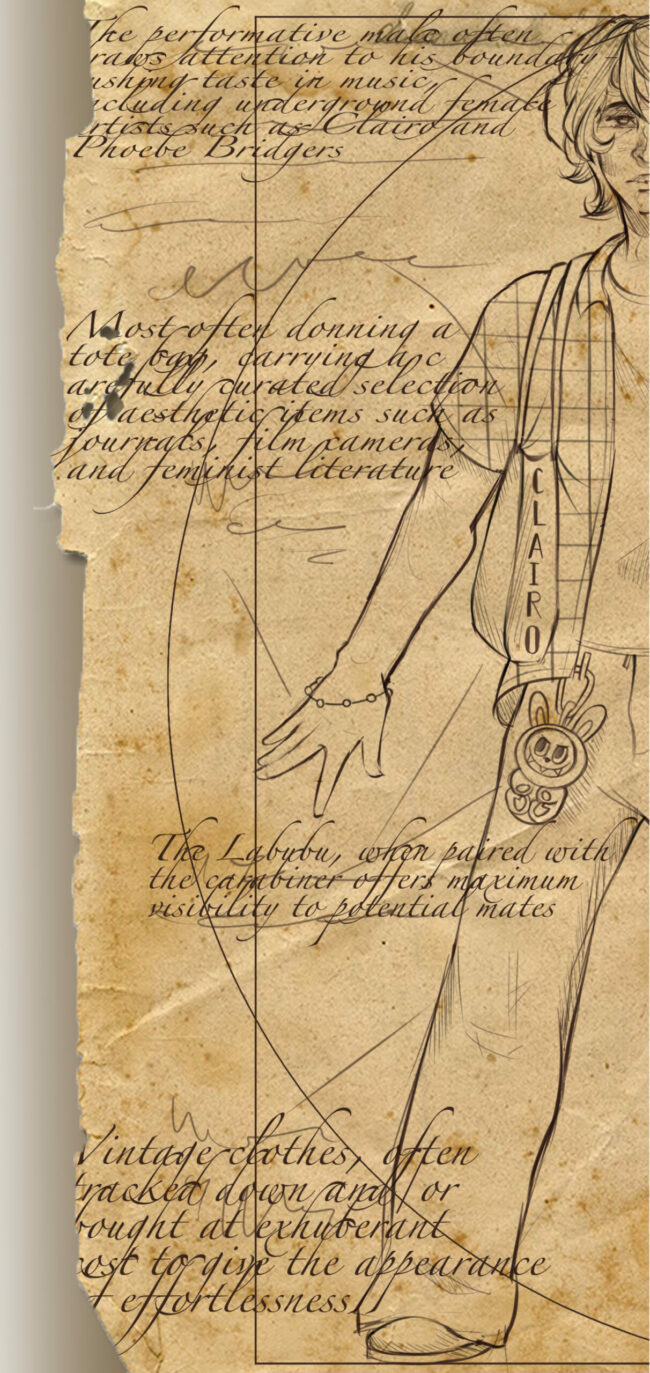 The performative male often
raws attention to his boundary-
ushing taste in music,
ncluding underground female
rtists such as Clairo and
Phoebe Bridgers
Most often donning a
tote bag, carrying a c
arefully curated selection
of aesthetic items such as
journals, film cameras,
and feminist literature
CLAIRO
The Labubu, when paired with
the carabiner offers maximum
visibility to potential mates
Vintage clothes, often
tracked down and / or
bought at exhuberant
cost to give the appearance
of effortlessness